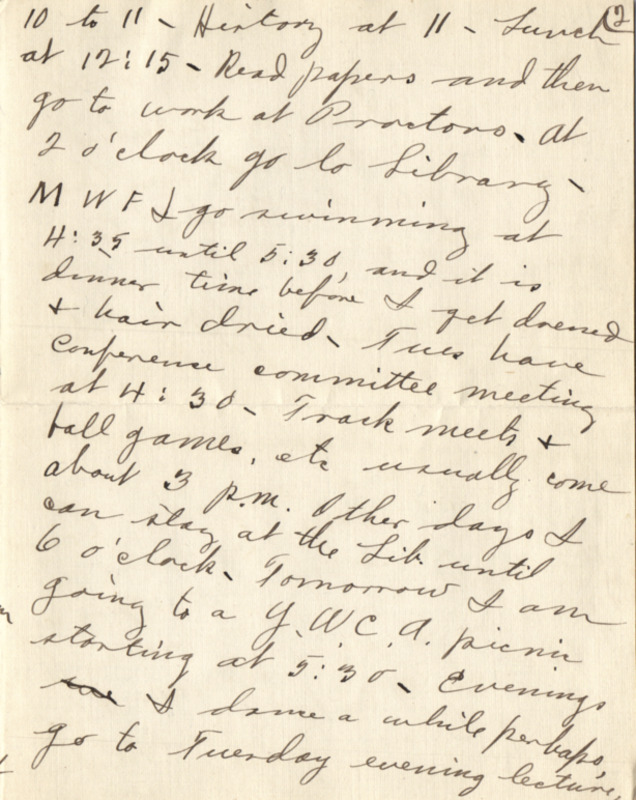 (2
10 to 11 - History at 11 - Lunch
at 12:15 - Read papers and then
go to work at Proctors. At
2 o'clock go to Library -
M W F I go swimming at
4:35 until 5:30, and it is
dinner time before I get dressed
+ hair dried - Tues have
conference committee meeting
at 4:30 - Track meets +
ball games, etc usually come
about 3 p.m. Other days I
can stay at the Lib. until
6 o'clock - Tomorrow I am
going to a Y.W.C.A. picnic
starting at 5:30 - Evenings
I dance a while perhaps,
go to Tuesday evening lecture,